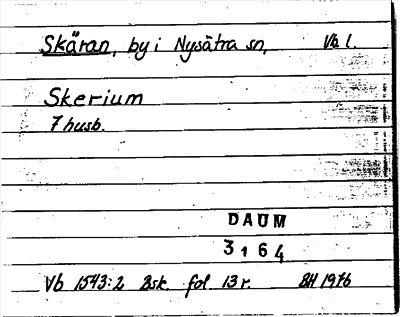 Skäran, by i Nysätra sn, Vb l.
Skerium
7 husb.
DAUM
3164
Vb 1543:2 Bsk. fol 13 r. BH 1976